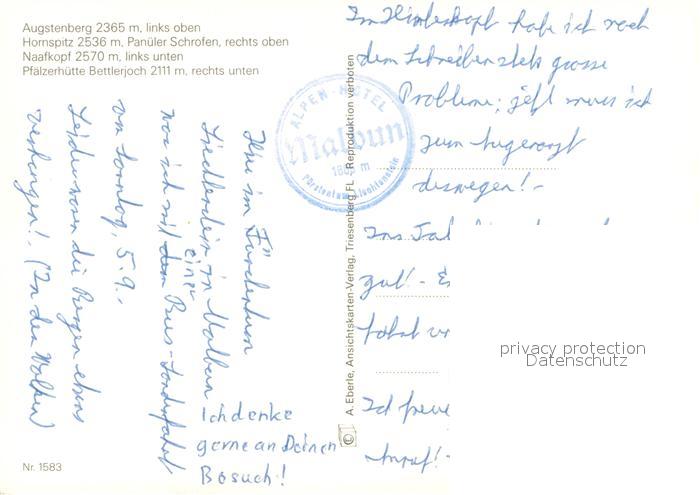 Augstenberg 2365 m, links oben
Hornspitz 2536 m, Panüler Schrofen, rechts oben
Naafkopf 2570 m, links unten
Pfälzerhütte Bettlerjoch 2111 m, rechts unten
Im Hinterkopf habe ich noch
dem Schreiben stets grosse
Probleme; jetzt muss ich
zum Augenarzt
deswegen! -
gut! -
Ich freue
Anruf! -
ALPEN-HOTEL
Malbun
m
Fürstentum Liechtenstein
Hier im Fürstentum
Liechtenstein in Malbun
war ich mit einer Bus-Sonderfahrt
am Sonntag, 5.9.-
Leider waren die Bergen ebens
verhangen! - (In den Wolken)
Ich denke
gerne an Deinen
Besuch!
A. Eberle, Ansichtskarten-Verlag, Triesenberg FL - Reproduktion verboten
privacy protection
Datenschutz
Nr. 1583